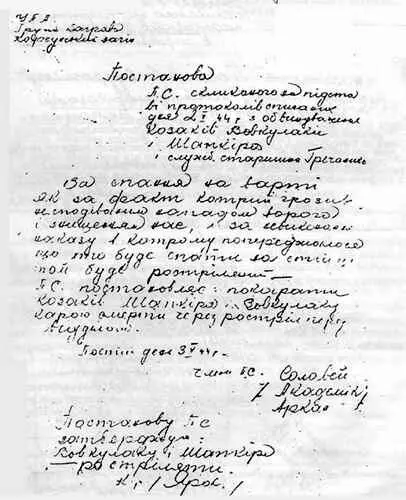 У.П.А.
Група
Постанова
П.С. скликаного на підста
ві протоколів списаних
дня 2 V 44 р. з обвинувачення
козаків Вовкулаки
і Шапкіра
і служб. старшини
За спання на варті
як за факт котрий грозив
несподіваним нападом ворога
і знищенням нас, і за невиконання
наказу в котрому попереджалося
що хто буде спати на стійці
той буде розтріляний —
П.С. постановляє: покарати
козаків Шапкіра і Вовкулаку
карою смерти через розстріл перед
Постій дня 3 V 44 р.
Члени П.С. Соловей
/ Академік /
Аркас /
Постанову ПС
затверджую:
Вовкулаку і Шапкіра
— розтріляти.
К. / Ярос. /